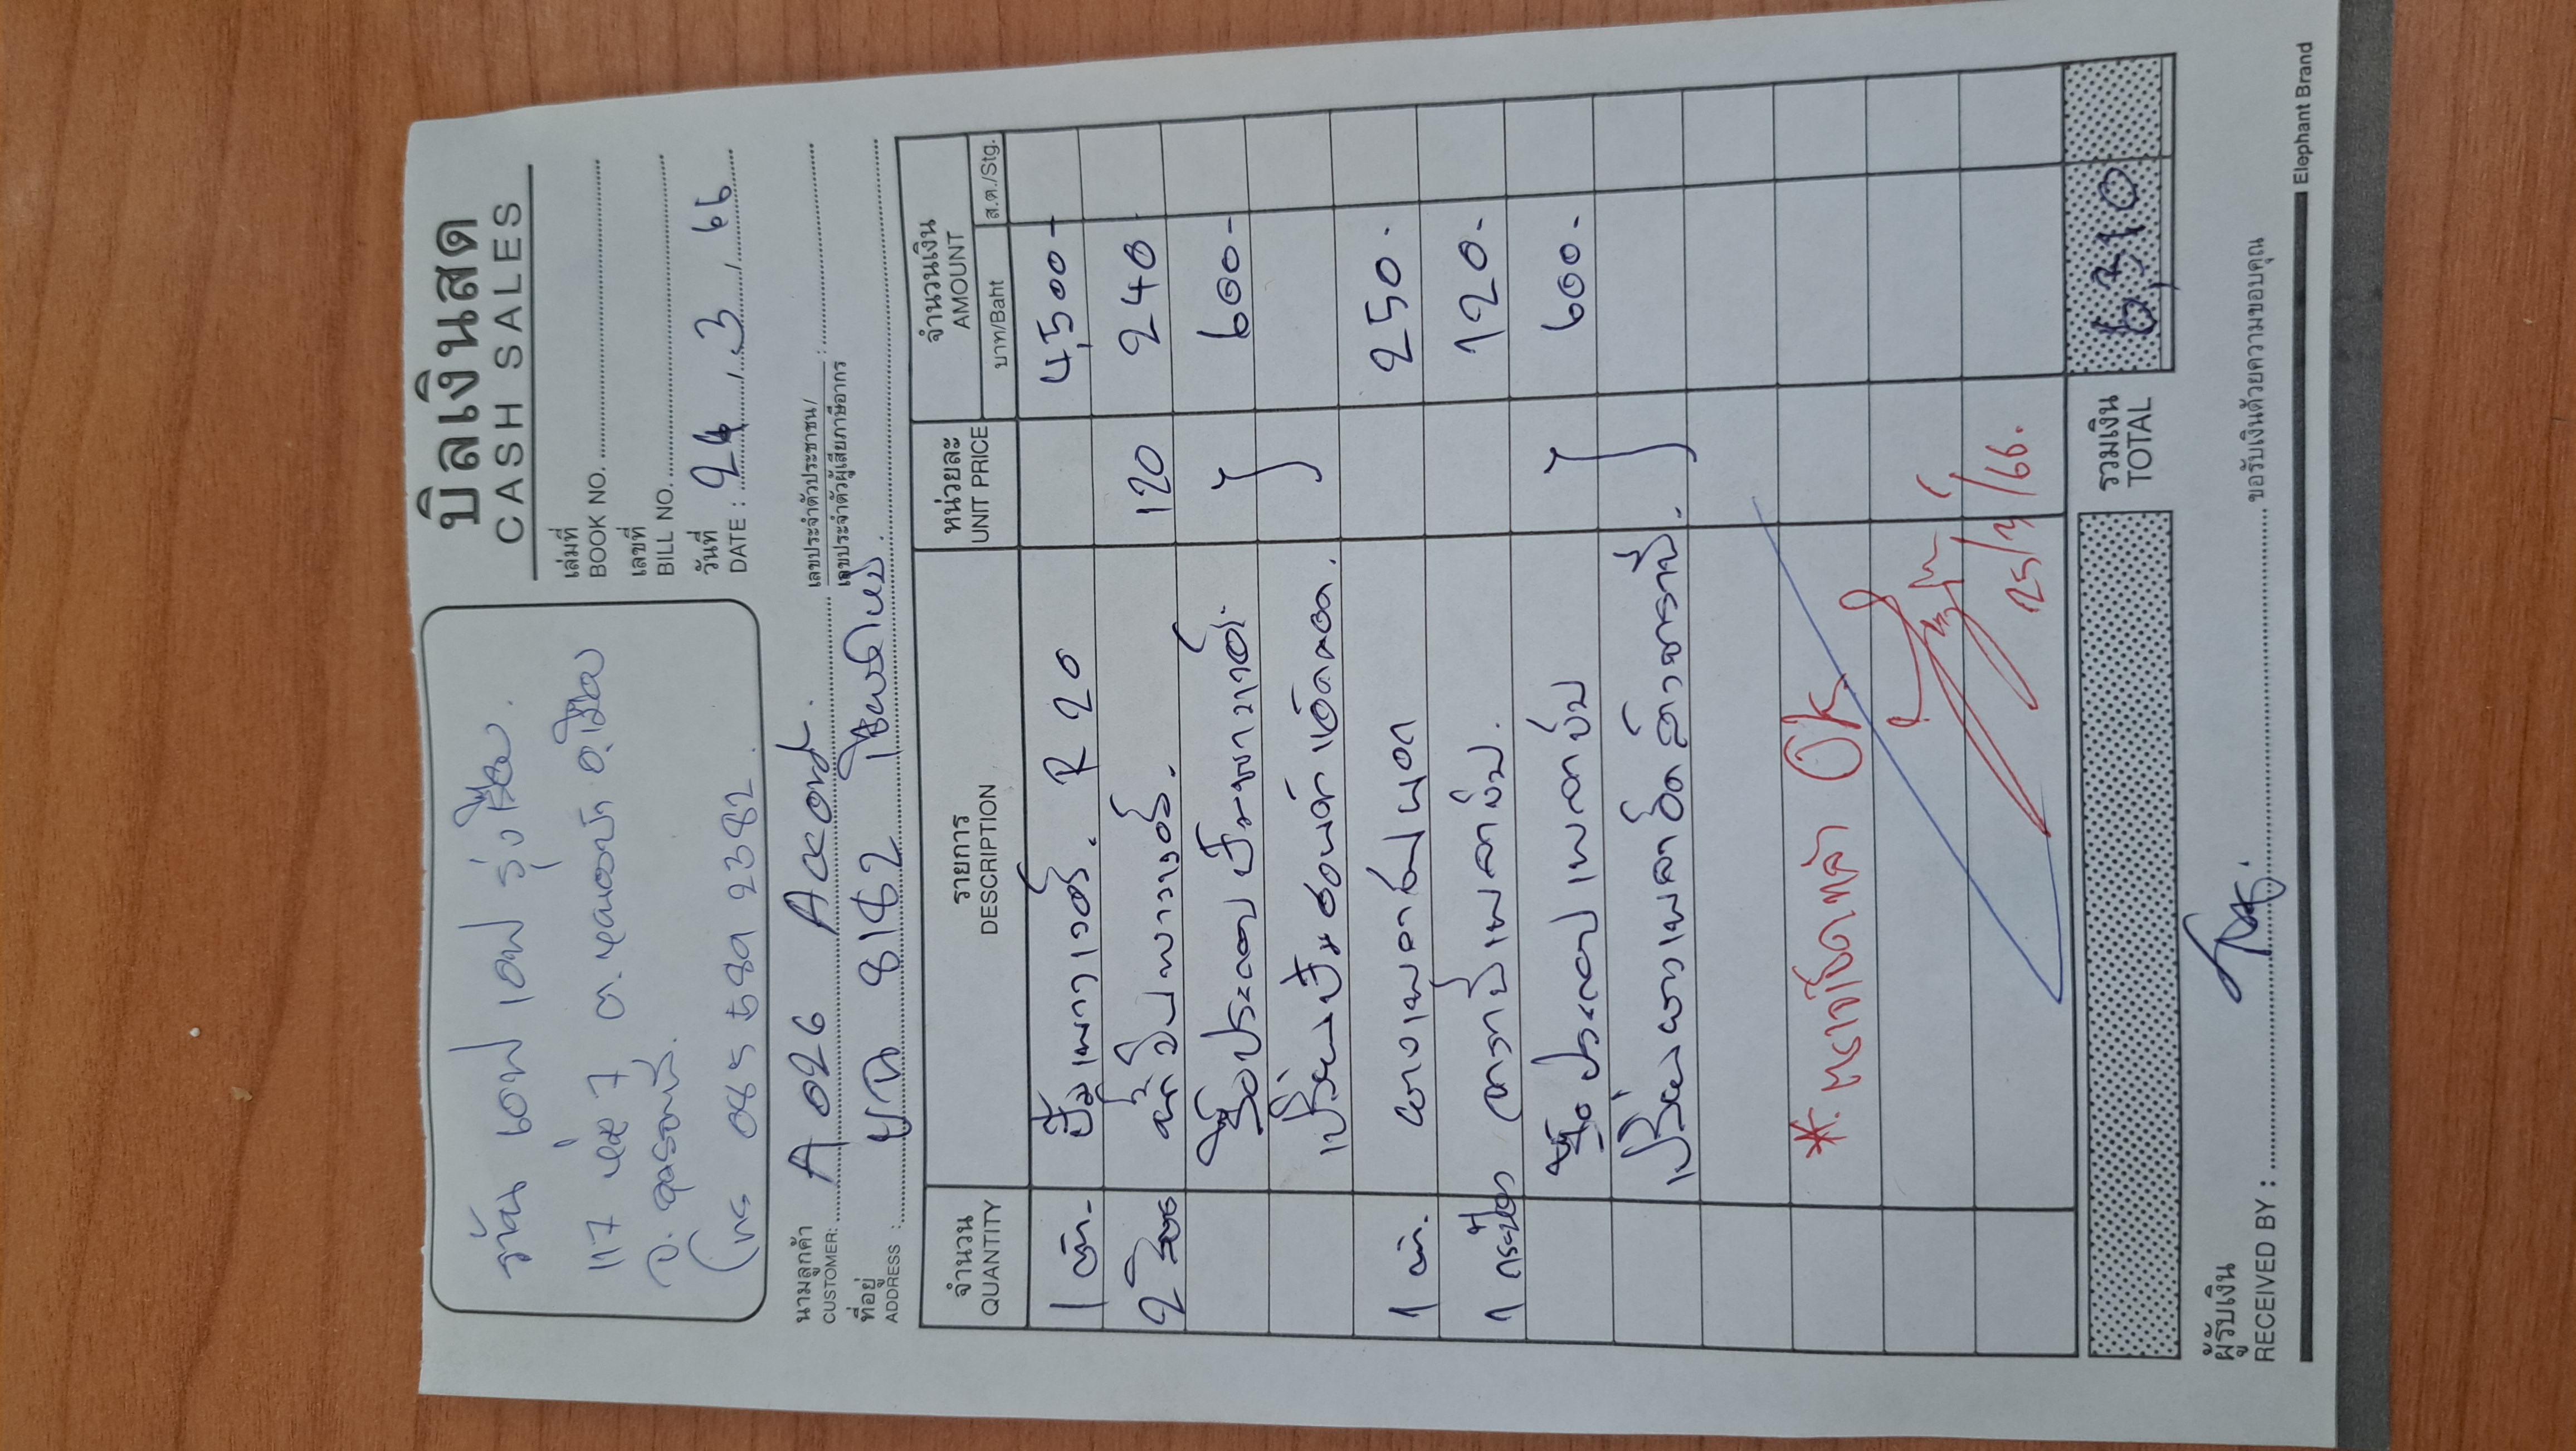 บิลเงินสด
CASH SALES
ร้าน เอฟ เอฟ รุ่งโรจน์
117 หมู่ 7 ต. อ.เมือง
จ. อุดรธานี
โทร 085 2382
เล่มที่
BOOK NO.
เลขที่
BILL NO.
วันที่
DATE : 24 , 3 , 66
นามลูกค้า
CUSTOMER: A 026 Accord.
เลขประจำตัวประชาชน/
เลขประจำตัวผู้เสียภาษีอากร :
ที่อยู่
ADDRESS : 8162
จำนวน รายการ หน่วยละ จำนวนเงิน
QUANTITY DESCRIPTION UNIT PRICE AMOUNT
บาท/Baht ส.ต./Stg.
1 ปั๊มเพาเวอร์. R 20 4,500 -
2 น้ำมันเพาเวอร์. 120 240
ปั๊มเพาเวอร์. 600 -
เปลี่ยนปั๊ม
1 ยางเพลา 250 -
1 กระป๋อง จาระบีเพลาขับ. 120 -
รื้อ ประกอบ เพลาขับ 600 -
เปลี่ยนยางเพลาอัดจาระบี.
* OK
25/ /66.
รวมเงิน
TOTAL 6,310
ผู้รับเงิน
RECEIVED BY : ขอรับเงินด้วยความขอบคุณ
Elephant Brand